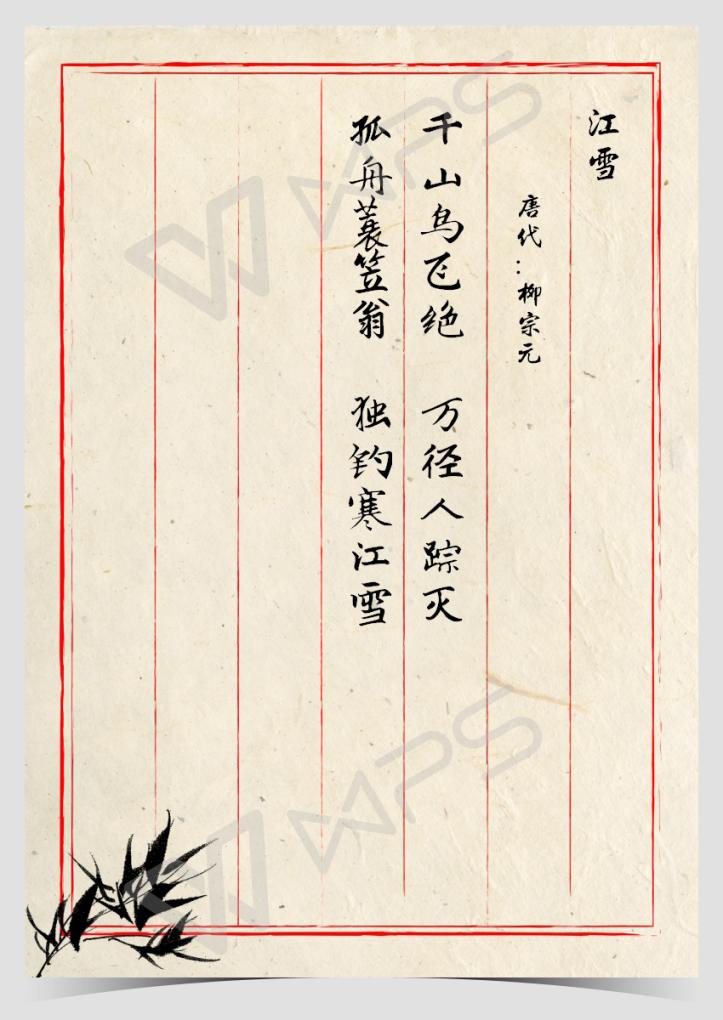 江雪
唐代：柳宗元
千山鸟飞绝 万径人踪灭
孤舟蓑笠翁 独钓寒江雪
WPS
WPS